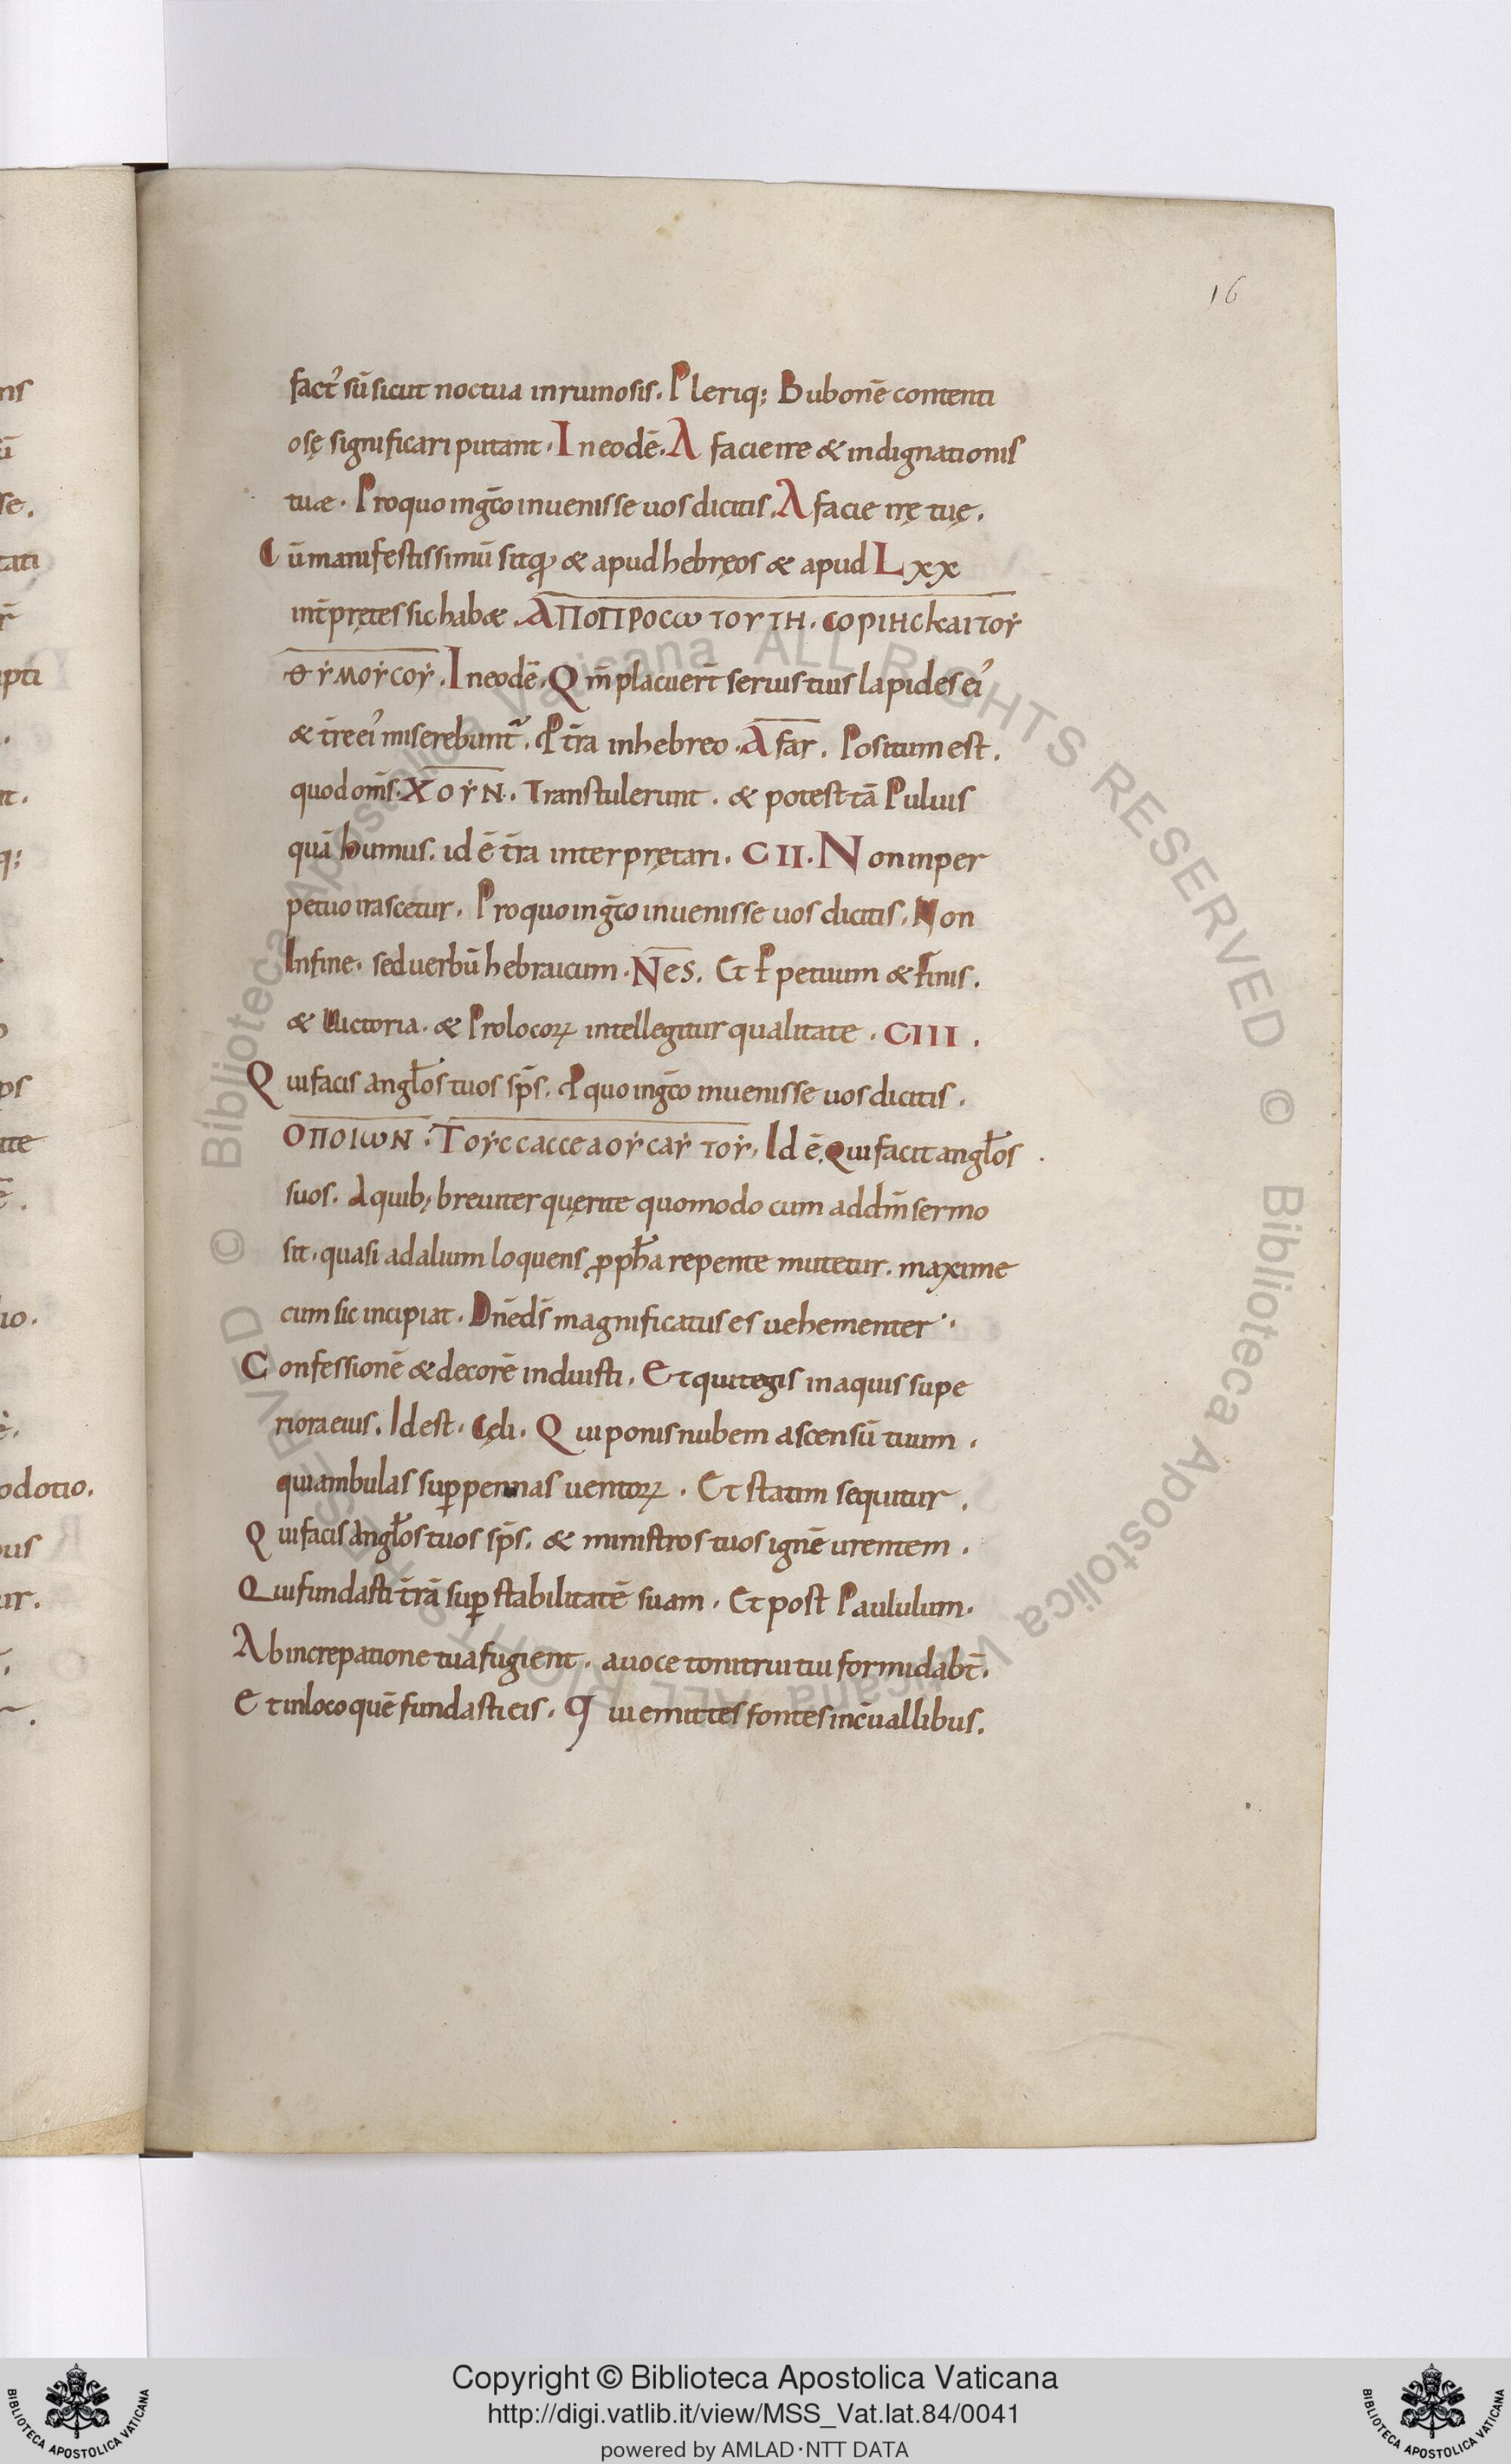 16
fact᾽ sū sicut noctua inruinosis. Pleriq; Bubonē contenti
osę significari putant. In eodē. A facie ire & indignationis
tuæ. Pro quo ingc̄o inuenisse uos dicitis. A facie irę tuę.
Cū manifestissimū sit qđ & apud hebręos & apud Lxx
int̄prętes sic habæ. ΑΠΟΠΡΟCω ΤΟΥ ΤΗ. COΡΙΗC ΚΑΙ ΤΟΥ
ΘΥΜΟΥ COΥ. In eodē. Qm̄ placuer̄t seruis tuis lapides ei᾽
& tr̄e ei᾽ miserebunt᾽. P t̄ra in hebreo. Afar. Positum est.
quod om̄s. ΧΟΥΝ. Transtulerunt. & potest tā Puluis
quā humus. id ē t̄ra interprętari. CII. Non in per
petuo irascetur. Pro quo ingc̄o inuenisse uos dicitis. Non
In fine. sed uerbū hebraicum. Nes. Et Ppetuum & Finis.
& Uictoria. & Pro locoꝝ intellegitur qualitate. CIII.
Qui facis angl̄os tuos sp̄s. P quo ingc̄o inuenisse uos dicitis.
ΟΠΟΙωΝ. ΤΟΥC CACCEAΟΥCΑΥ ΤΟΥ. Id ē. Qui facit angl̄os
suos. A quib; breuiter quęrite quomodo cum ad dm̄ sermo
sit. quasi ad alium loquens ꝓph̄a repente mutetur. maxime
cum sic incipiat. Dn̄e ds̄ magnificatus es uehementer.
Confessionē & decorē induisti. Et qui tegis in aquis supe
riora eius. Id est. Cęli. Qui ponis nubem ascensū tuum.
qui ambulas suꝑ pennas uentoꝝ. Et statim sequitur.
Qui facis Angl̄os tuos sp̄s. & ministros tuos ignē urentem.
Qui fundasti t̄rā suꝑ stabilitatē suam. Et post Paululum.
Ab increpatione tua fugient. a uoce tonitrui tui formidabt̄.
Et in loco quē fundasti eis. Qui emittes fontes in c̄uallibus.
Copyright © Biblioteca Apostolica Vaticana
http://digi.vatlib.it/view/MSS_Vat.lat.84/0041
powered by AMLAD·NTT DATA